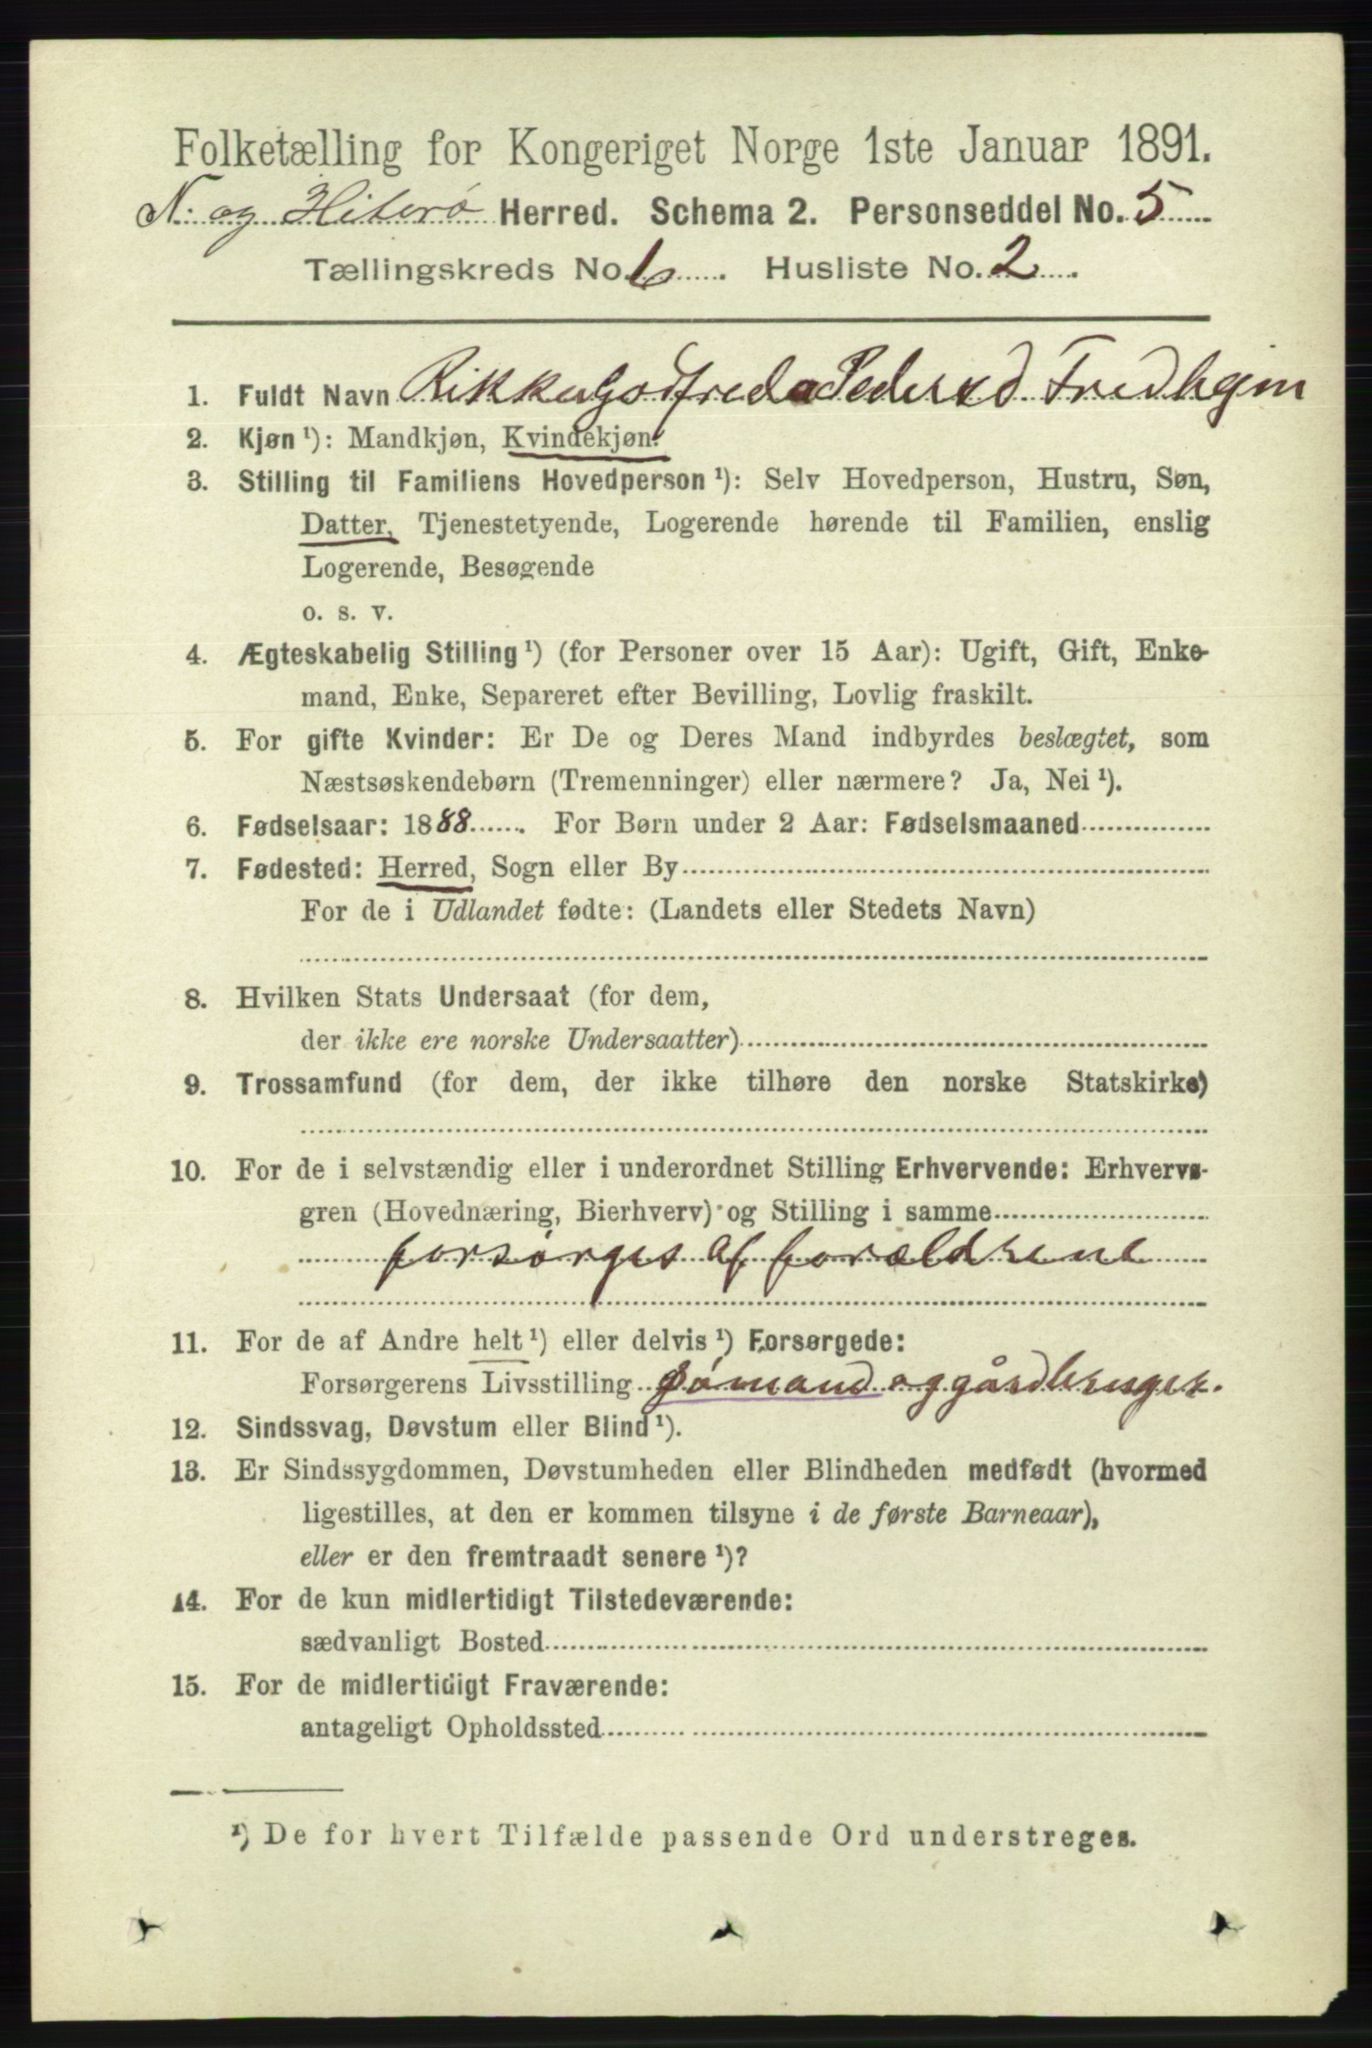 Folketælling for Kongeriget Norge 1ste Januar 1891.
N. og Hiterø Herred. Schema 2. Personseddel No. 5
Tællingskreds No. 6. Husliste No. 2.
1. Fuldt Navn Rikka Godfreda Pedersd Fredhejm
2. Kjøn ¹): Mandkjøn, Kvindekjøn.
3. Stilling til Familiens Hovedperson ¹): Selv Hovedperson, Hustru, Søn,
Datter, Tjenestetyende, Logerende hørende til Familien, enslig
Logerende, Besøgende
o. s. v.
4. Ægteskabelig Stilling ¹) (for Personer over 15 Aar): Ugift, Gift, Enke-
mand, Enke, Separeret efter Bevilling, Lovlig fraskilt.
5. For gifte Kvinder: Er De og Deres Mand indbyrdes beslægtet, som
Næstsøskendebørn (Tremenninger) eller nærmere? Ja, Nei ¹).
6. Fødselsaar: 1888. For Børn under 2 Aar: Fødselsmaaned
7. Fødested: Herred, Sogn eller By
For de i Udlandet fødte: (Landets eller Stedets Navn)
8. Hvilken Stats Undersaat (for dem,
der ikke ere norske Undersaatter)
9. Trossamfund (for dem, der ikke tilhøre den norske Statskirke)
10. For de i selvstændig eller i underordnet Stilling Erhvervende: Erhvervs-
gren (Hovednæring, Bierhverv) og Stilling i samme
forsørges af forældrene
11. For de af Andre helt ¹) eller delvis ¹) Forsørgede:
Forsørgerens Livsstilling Sømand og gårdbruger.
12. Sindssvag, Døvstum eller Blind ¹).
13. Er Sindssygdommen, Døvstumheden eller Blindheden medfødt (hvormed
ligestilles, at den er kommen tilsyne i de første Barneaar),
eller er den fremtraadt senere ¹)?
14. For de kun midlertidigt Tilstedeværende:
sædvanligt Bosted
15. For de midlertidigt Fraværende:
antageligt Opholdssted
¹) De for hvert Tilfælde passende Ord understreges.